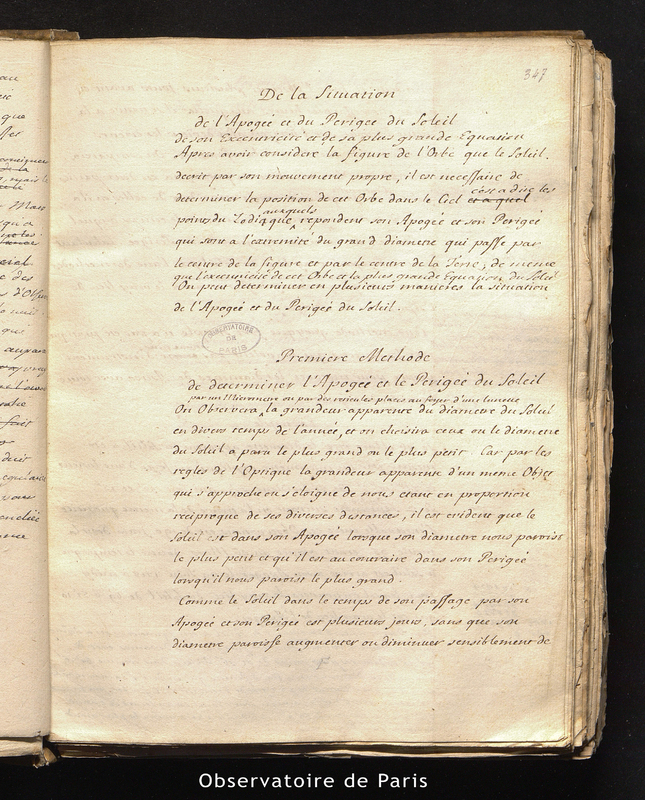 347
De la Situation
de l'Apogée et du Perigée du Soleil
de son Excentricité et de sa plus grande Equation
Apres avoir consideré la figure de l'Orbe que le Soleil.
decrit par son mouvement propre, il est necessaire de
c'est a dire les
determiner la position de cet Orbe dans le Ciel et a quel
auxquels
points du Zodiaque repondent son Apogée et son Perigée
qui sont a l'extremité du grand diametre qui passe par
le centre de la figure et par le centre de la Terre, de mesme
que l'excentricité de cet Orbe et la plus grande Equation du Soleil
On peut determiner en plusieurs manieres la situation
de l'Apogée et du Perigée du Soleil.
OBSERVATOIRE
DE
PARIS
Premiere Methode
de determiner l'Apogée et le Perigée du Soleil
par un Micrometre ou par des reticules placés au foyer d'une lunette
On Observera la grandeur apparente du diametre du Soleil
en divers temps de l'année, et on choisira ceux ou le diametre
du Soleil a paru le plus grand ou le plus petit. Car par les
regles de l'Optique la grandeur apparente d'un meme Objet
qui s'approche ou s'eloigne de nous etant en proportion
reciproque de ses diverses distances, il est evident que le
Soleil est dans son Apogée lorsque son diametre nous paroist
le plus petit et qu'il est au contraire dans son Perigée
lorsqu'il nous paroist le plus grand.
Comme le Soleil dans le temps de son passage par son
Apogée et son Perigée est plusieurs jours, sans que son
diametre paroisse augmenter ou diminuer sensiblement de
Observatoire de Paris